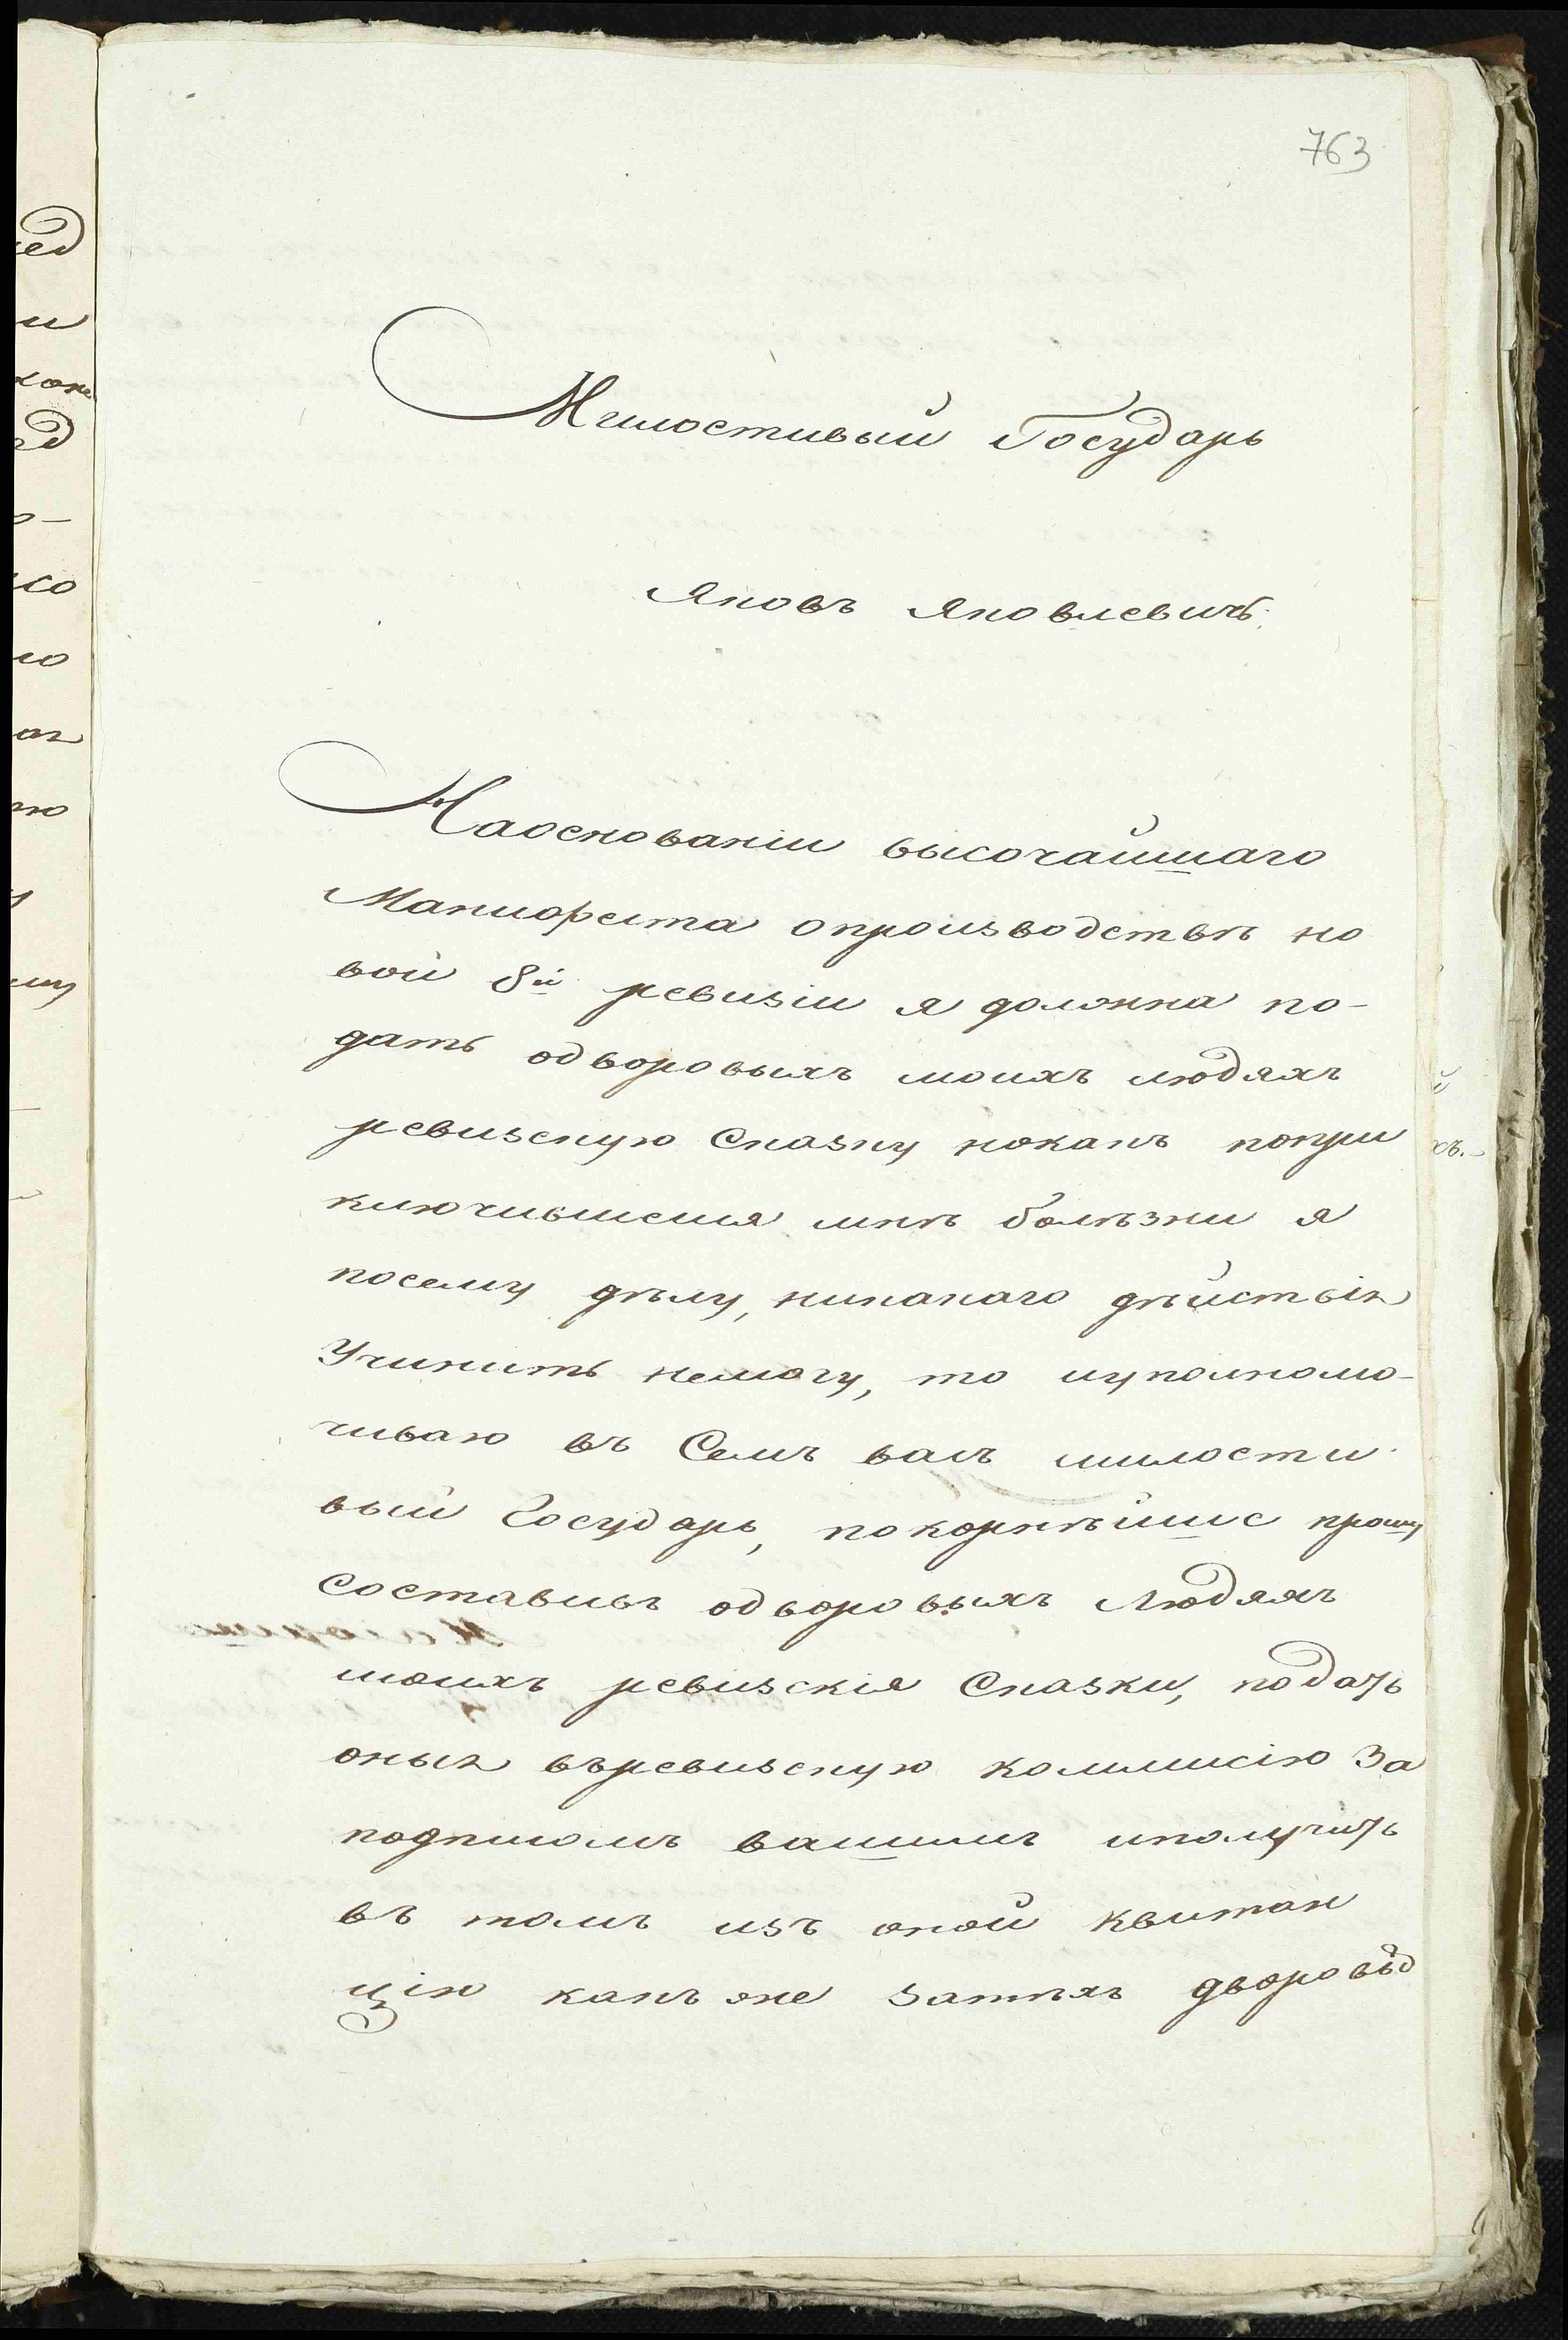 763
Милостивый Государь
Яковъ Яковлевичь.
Наоснованіи высочайшаго
Манифеста опроизводствѣ но
вой 8й ревизіи я должна по-
дать одворовыхъ моихъ людяхъ
ревизскую Сказку нокакъ попри
ключившейся мнѣ болѣзни я
посему дѣлу, никакаго дѣйствія
Учинить немогу, то иуполномо-
чиваю въ Семъ васъ милости
вый Государь, покорнѣйше прошу
составивъ одворовыхъ Людяхъ
моихъ ревизскія Сказки, подать
оныя въревизскую коммисію За
подписомъ вашимъ иполучить
въ томъ изъ оной квитан
цію какъ же затѣхъ дворовы